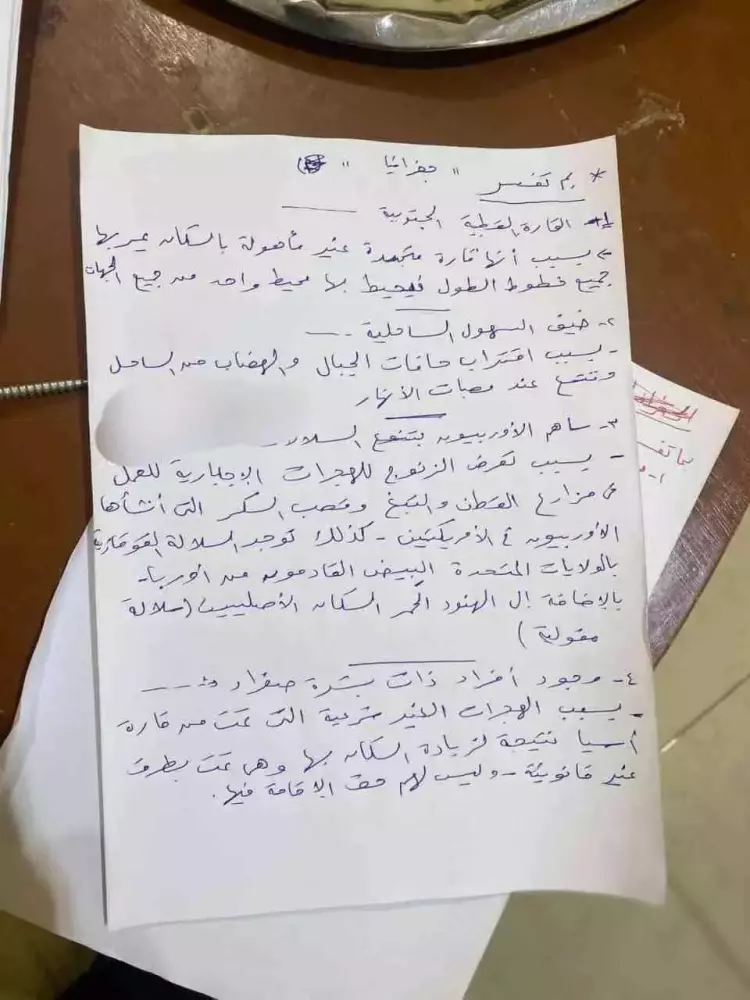 * بم تفسر " جغرافيا "
١- القارة القطبية الجنوبية
بسبب أنها قارة متجمدة غير مأهولة بالسكان يمر بها
جميع خطوط الطول فيحيط بها محيط واحد من جميع الجهات
٢- ضيق السهول الساحلية
- بسبب اقتراب حافات الجبال والهضاب من الساحل
وتتسع عند مصبات الأنهار
٣- ساهم الأوربيون بتنوع السلالا
- بسبب تعرض الزنوج للهجرات الإجبارية للعمل
فى مزارع القطن والتبغ وقصب السكر التى أنشأها
الأوربيون فى الأمريكتين - كذلك توجد السلالة القوقازية
بالولايات المتحدة البيض القادمون من أوربا -
بالإضافة إلى الهنود الحمر السكان الأصليين (سلالة
مغولية )
٤- وجود أفراد ذات بشرة صفراء
- بسبب الهجرات الغير شرعية التى تمت من قارة
أسيا نتيجة لزيادة السكان بها وهى تمت بطرق
غير قانونية - وليس لهم حق الاقامة فيها .